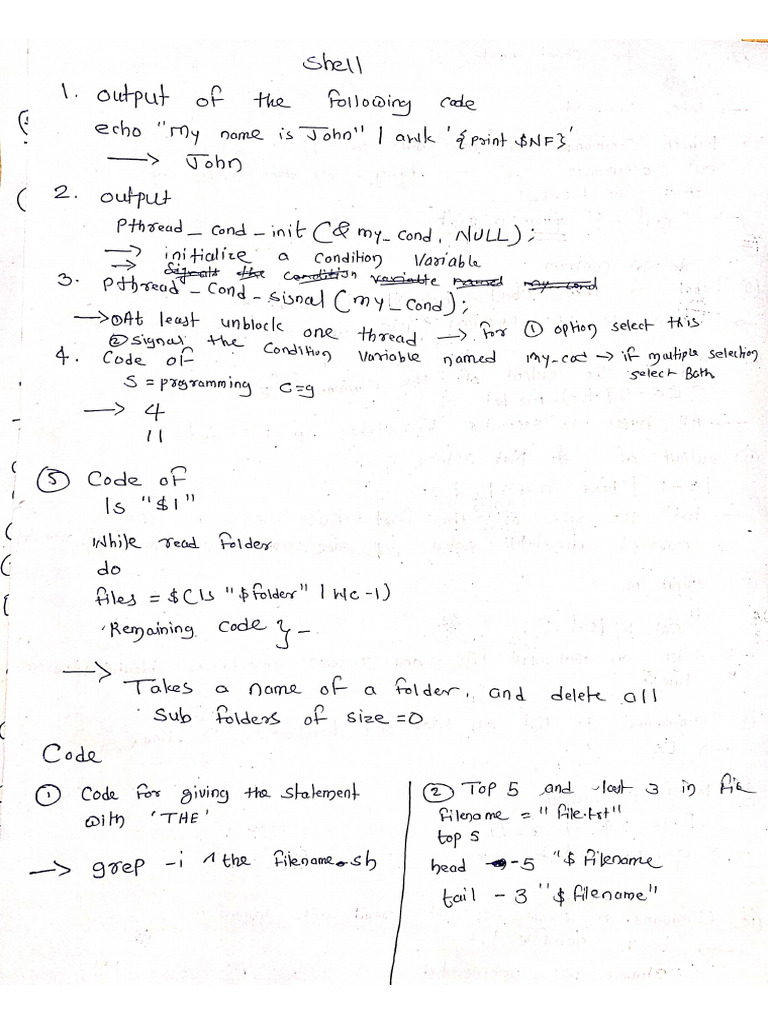 Shell
1. output of the following code
echo "My name is John" | awk '{print $NF}'
→ John
2. output
Pthread_cond_init (& my_cond, NULL);
→ initialize a condition variable
→ Signals the condition variable named my_cond
3. pthread_cond_sisnal (my_cond);
→ ① At least unblock one thread → for ① option select this
② signal the condition variable named my_cod → if multiple selection select Both
4. Code of
S = programming C=g
→ 4
11
⑤ Code of
ls "$1"
While read folder
do
files = $(ls "$folder" | wc -l)
'Remaining code } -
→ Takes a name of a folder, and delete all
Sub folders of size = 0
Code
① Code for giving the statement
with 'THE'
→ grep -i ^the filename.sh
② Top 5 and last 3 in file
filename = "file.txt"
top 5
head -5 "$filename
tail - 3 "$filename"